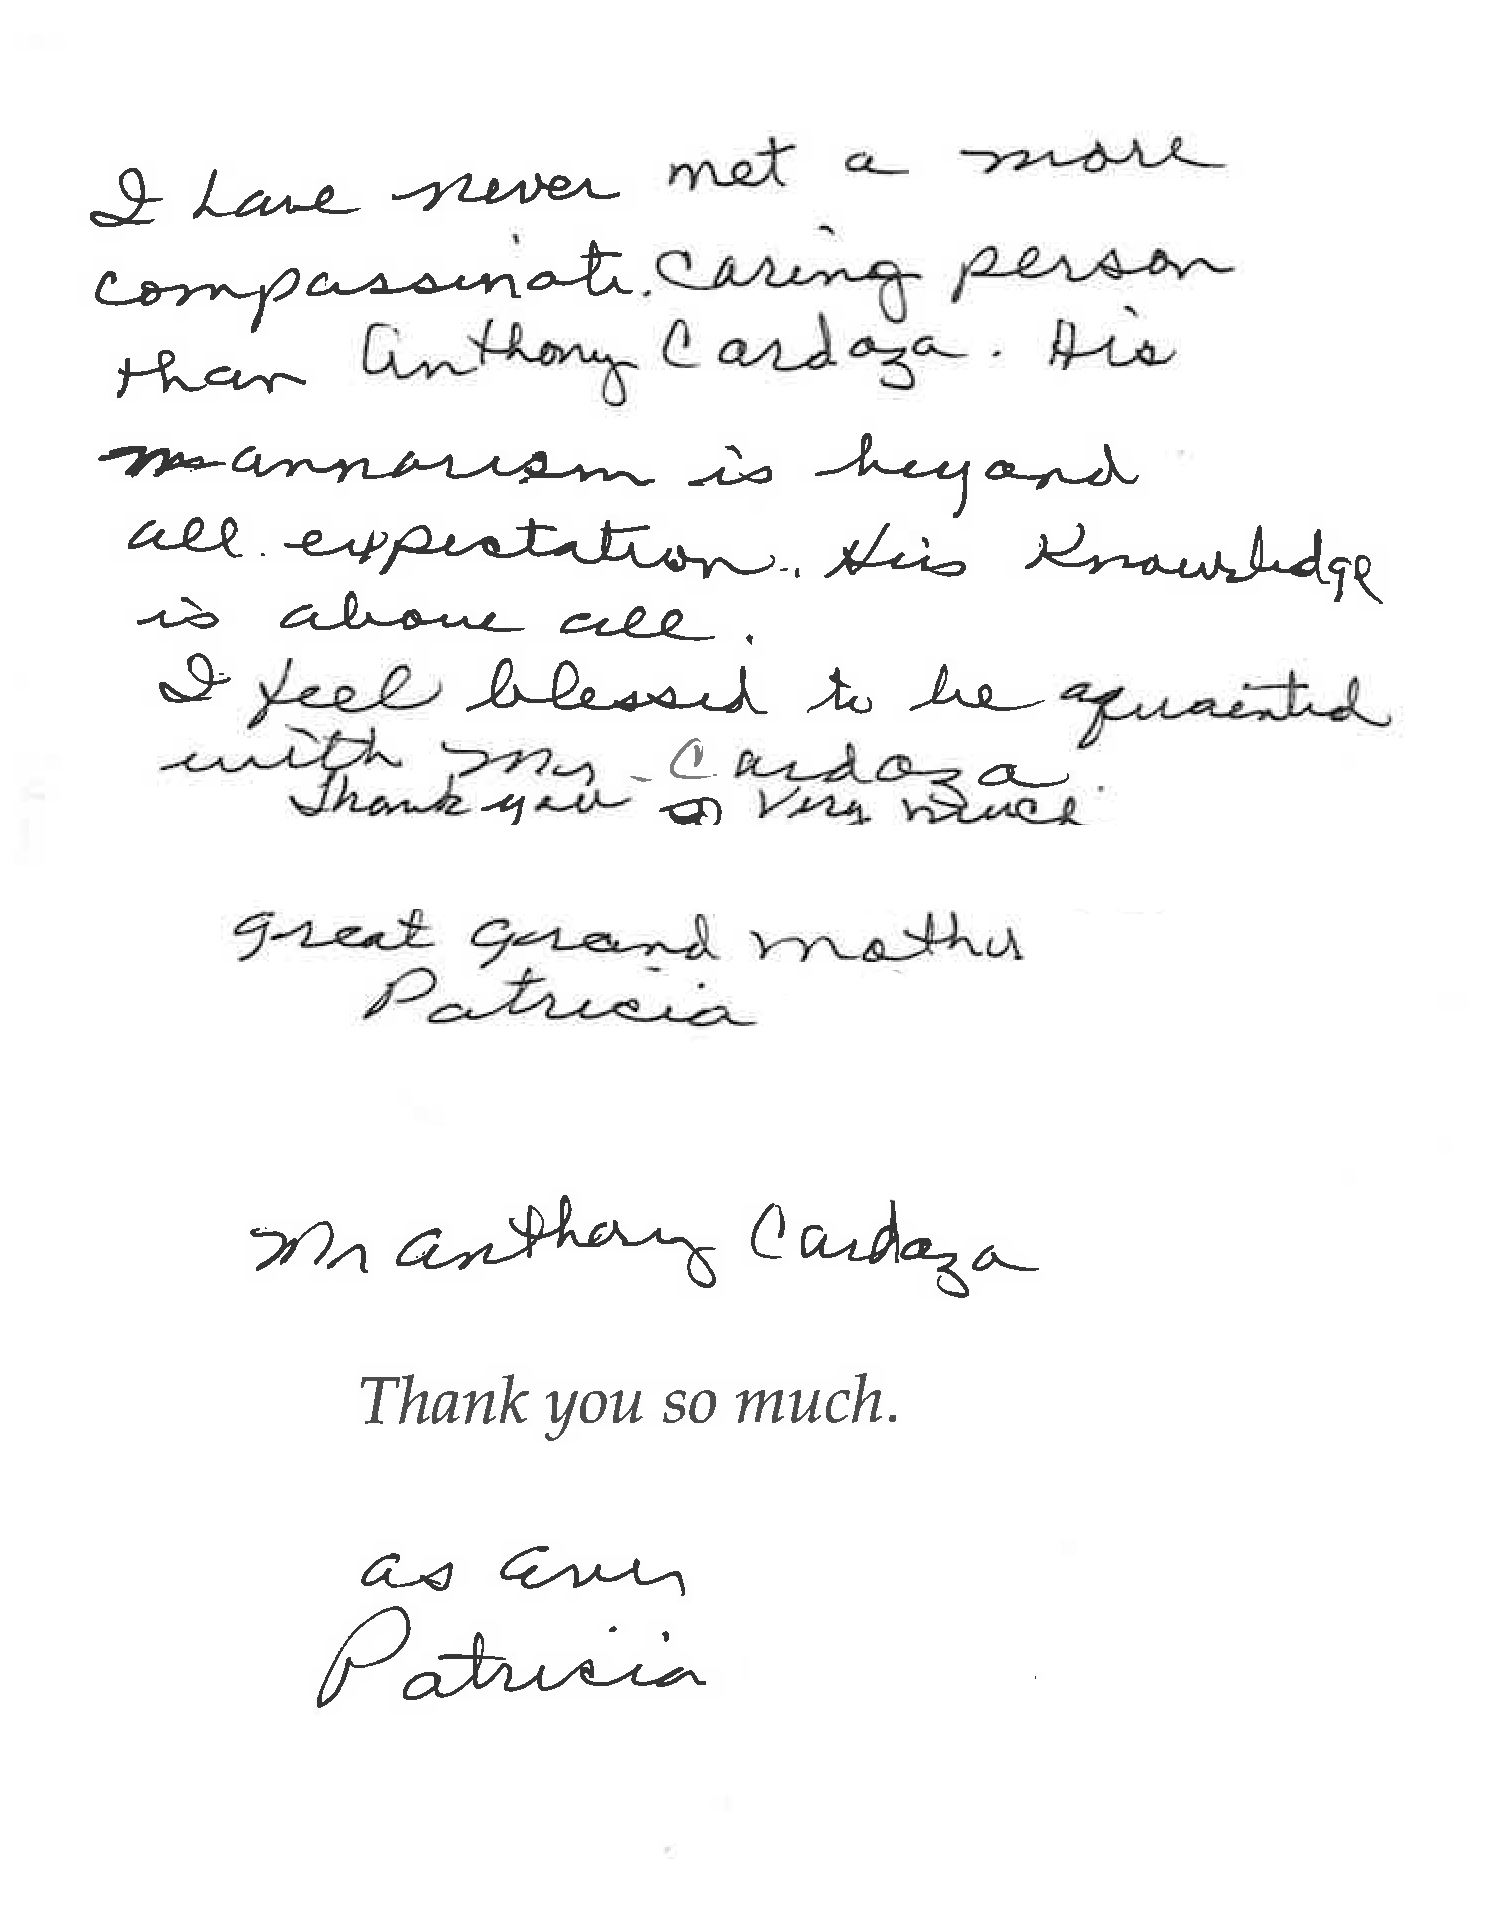 I have never met a more
compassinate. Caring person
than Anthony Cardoza. His
mannarism is beyond
all. expectation. His Knowledge
is above all.
I feel blessed to be aquainted
with Mr. Cardoza.
Thank you Very much
great grand mother
Patricia
Mr Anthony Cardoza
Thank you so much.
as ever
Patricia